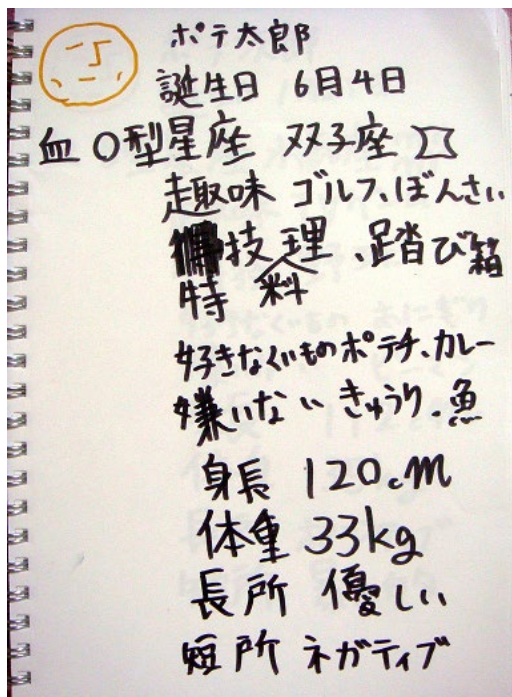 ポテ太郎
誕生日 6月4日
血 O型星座 双子座
趣味 ゴルフ、ぼんさい
特技 料理、踏び箱
好きなくいものポテチ、カレー
嫌いない きゅうり、魚
身長 120cm
体重 33kg
長所 優しい
短所 ネガティブ